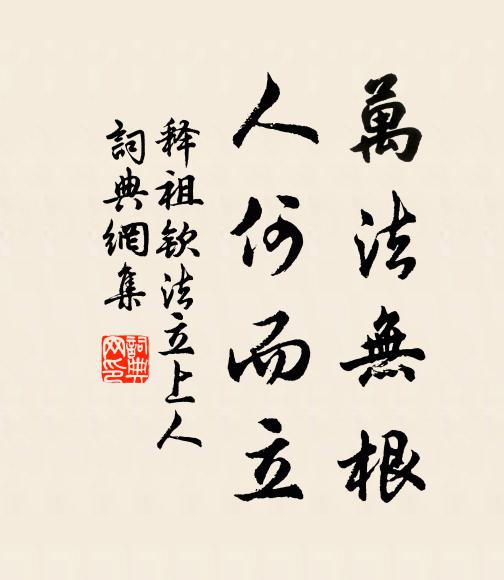 萬法無根
人何而立
释祖钦法立上人
詞典網集
詞典
网印